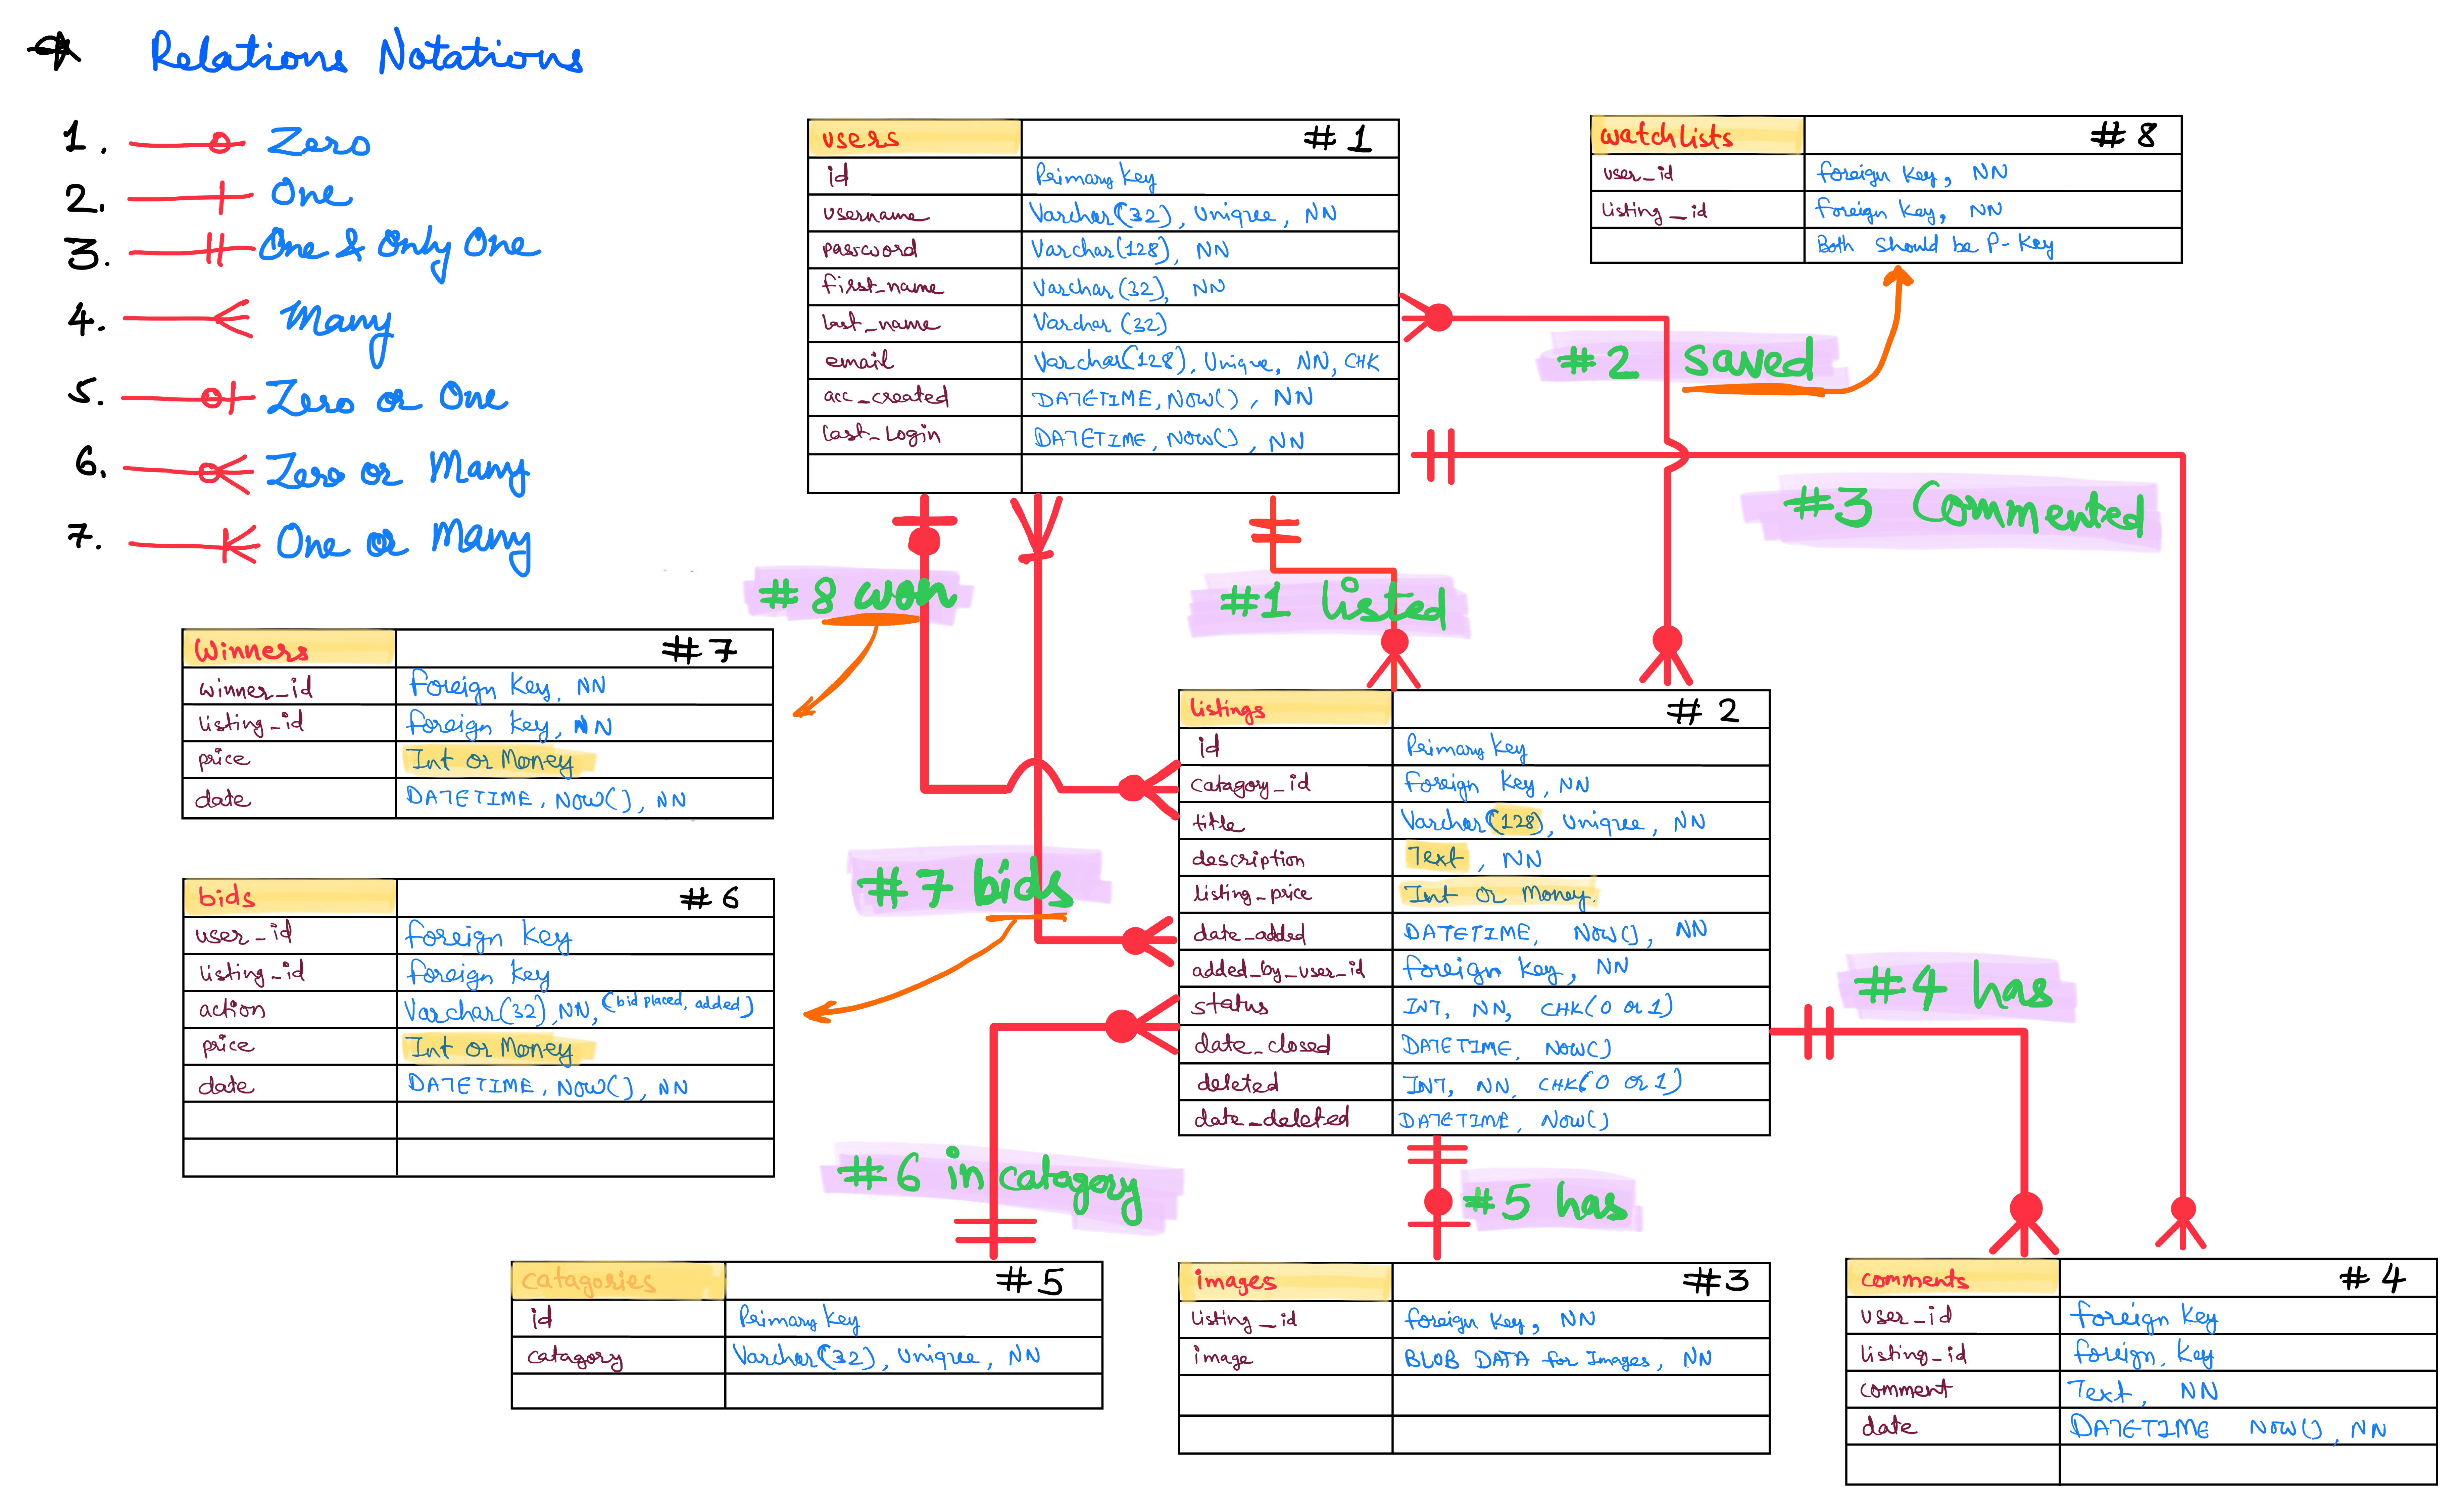 Relations Notations
1. Zero
2. One
3. One & Only One
4. Many
5. Zero or One
6. Zero or Many
7. One or Many
users #1
id Primary Key
username Varchar(32), Unique, NN
password Varchar(128), NN
first_name Varchar(32), NN
last_name Varchar(32)
email Varchar(128), Unique, NN, CHK
acc_created DATETIME, NOW(), NN
last_login DATETIME, NOW(), NN
watchlists #8
user_id foreign key, NN
listing_id foreign key, NN
Both should be P-Key
#2 saved
#3 Commented
#8 won
#1 listed
Winners #7
winner_id foreign key, NN
listing_id foreign key, NN
price Int or Money
date DATETIME, NOW(), NN
listings #2
id Primary Key
catagory_id foreign key, NN
title Varchar(128), Unique, NN
description Text, NN
listing_price Int or Money.
date_added DATETIME, NOW(), NN
added_by_user_id foreign key, NN
status INT, NN, CHK(0 or 1)
date_closed DATETIME, NOW()
deleted INT, NN, CHK(0 or 1)
date_deleted DATETIME, NOW()
#7 bids
bids #6
user_id foreign key
listing_id foreign key
action Varchar(32), NN, (bid placed, added)
price Int or Money
date DATETIME, NOW(), NN
#4 has
#6 in catagory
#5 has
catagories #5
id Primary Key
catagory Varchar(32), Unique, NN
images #3
listing_id foreign key, NN
image BLOB DATA for Images, NN
comments #4
user_id foreign key
listing_id foreign, key
comment Text, NN
date DATETIME NOW(), NN